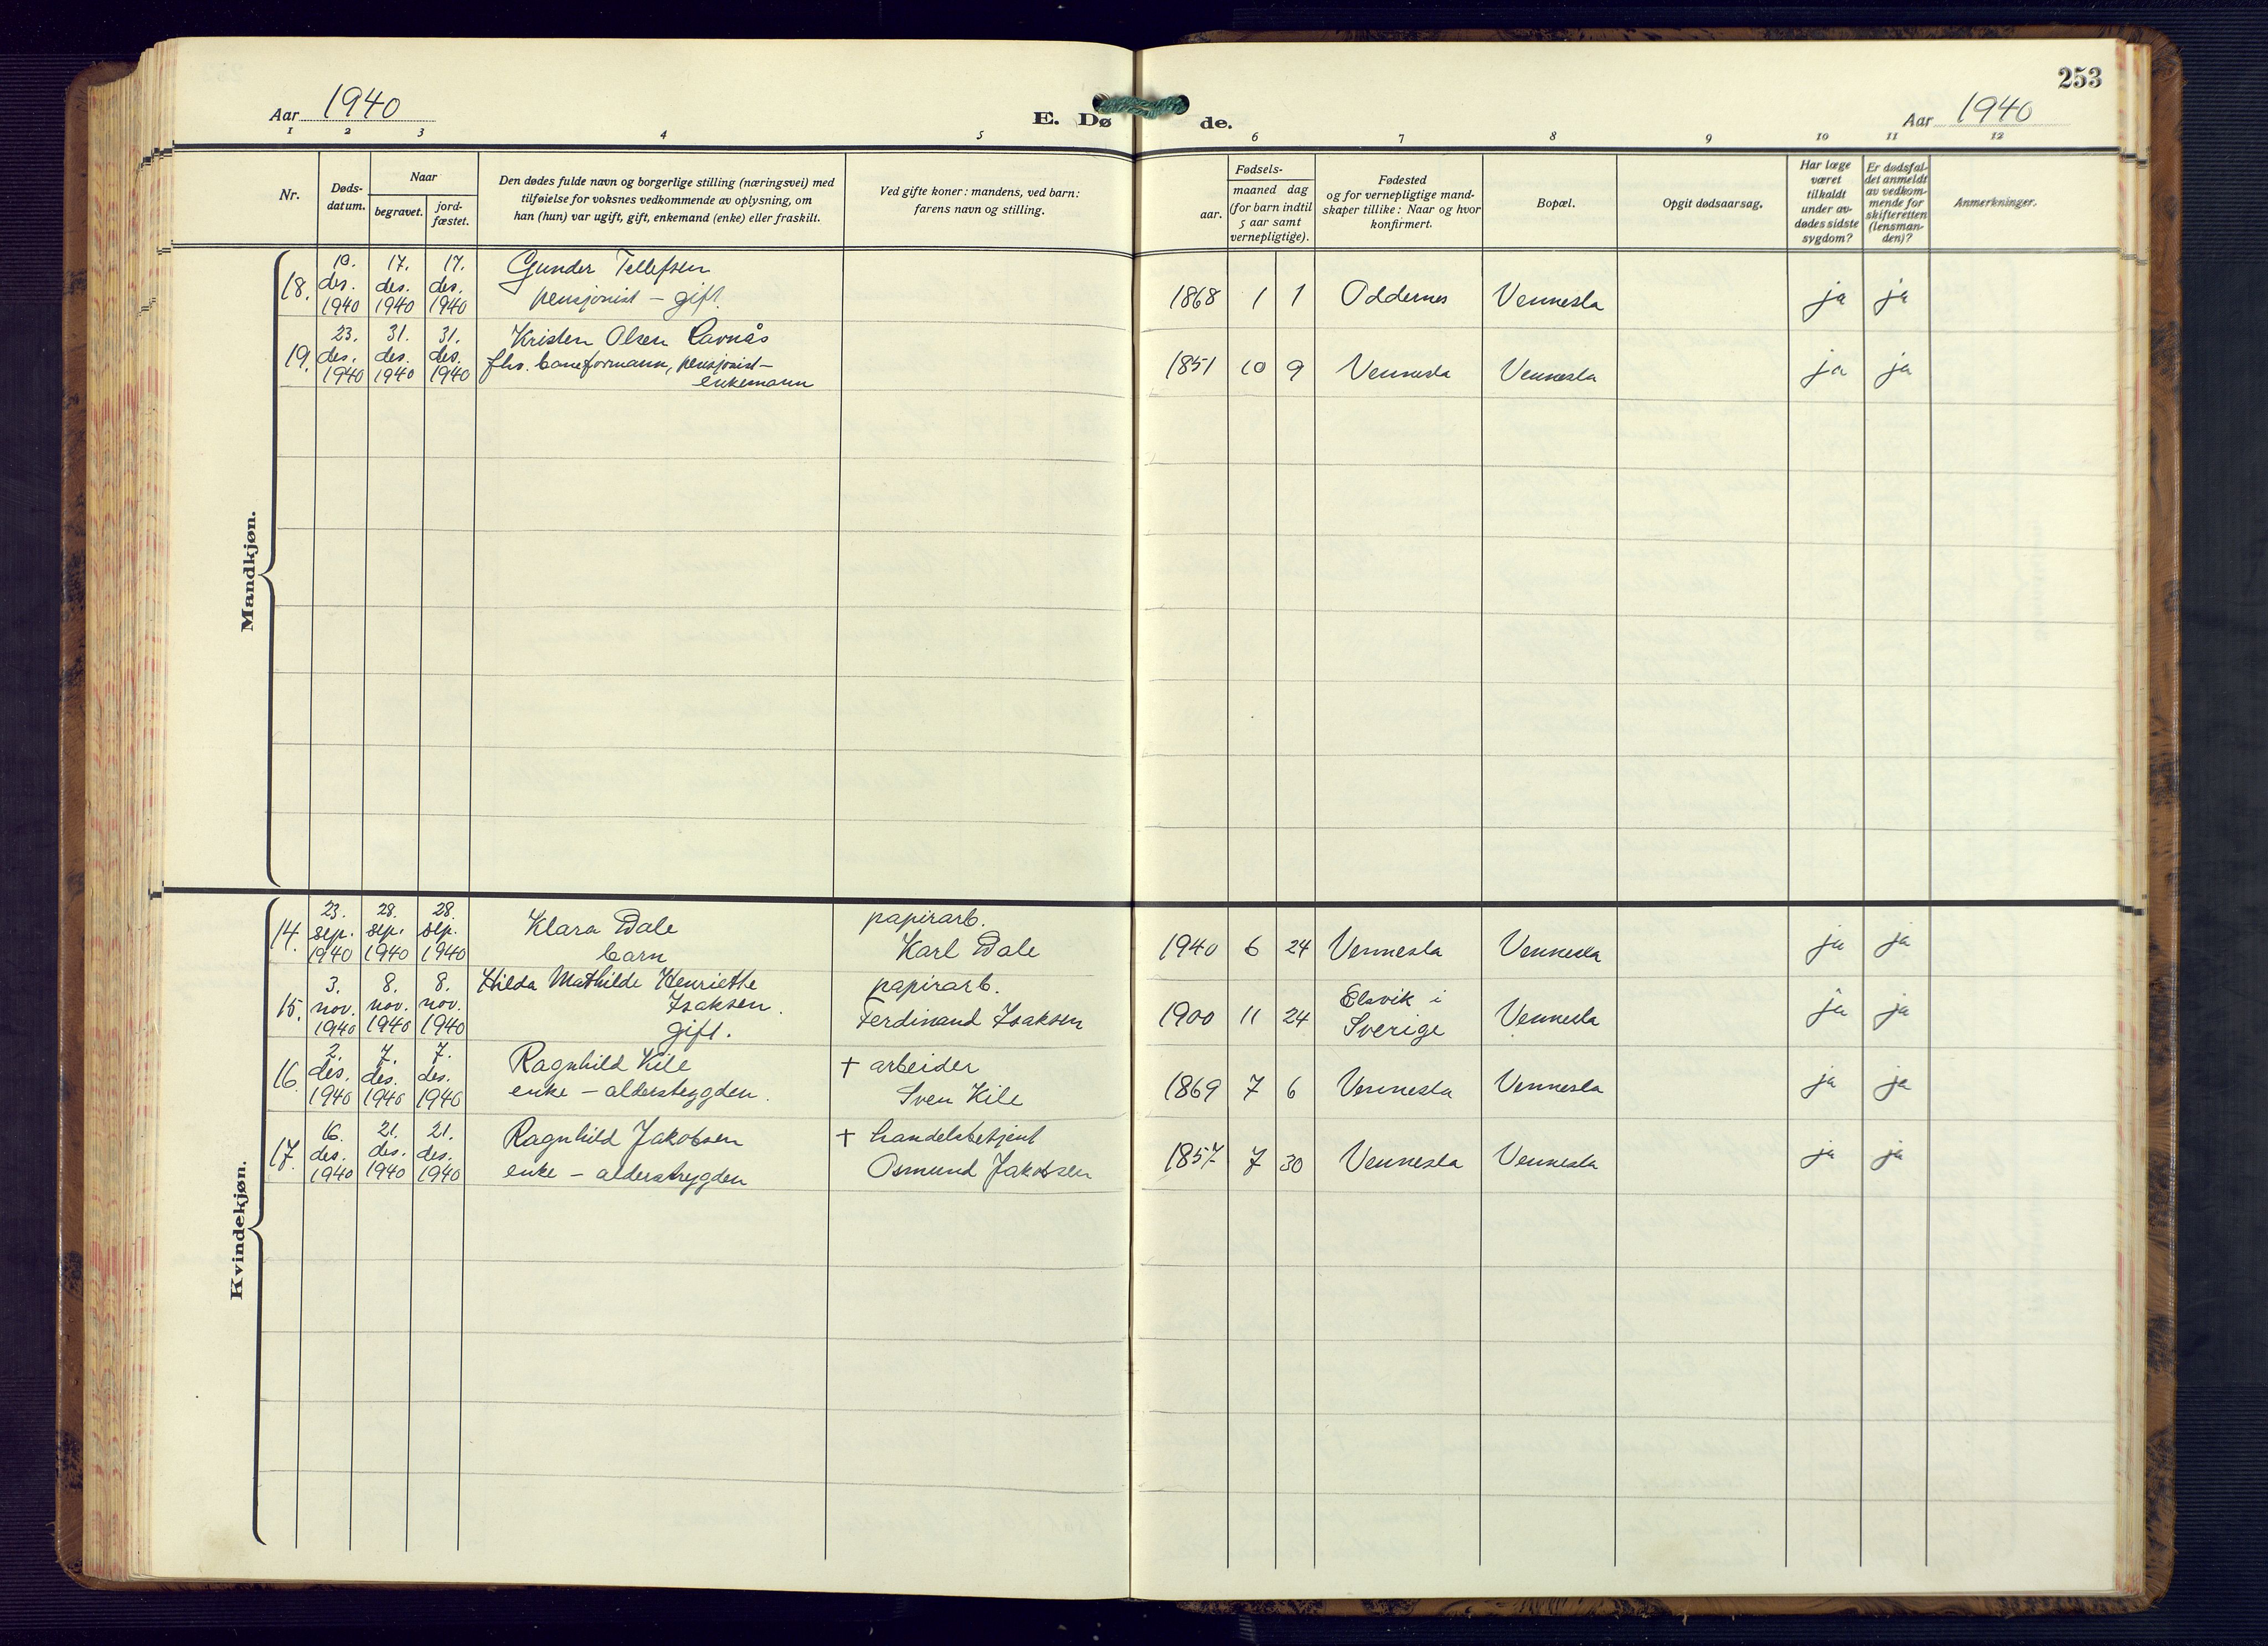 253
Aar 1940
E. Dø
de.
Aar 1940
1 2 3 4 5 6 7 8 9 10 11 12
Nr.
Døds-
datum.
Naar
begravet.
jord-
fæstet.
Den dødes fulde navn og borgerlige stilling (næringsvei) med
tilføielse for voksnes vedkommende av oplysning, om
han (hun) var ugift, gift, enkemand (enke) eller fraskilt.
Ved gifte koner: mandens, ved barn:
farens navn og stilling.
Fødsels-
aar.
maaned dag
(for barn indtil
5 aar samt
vernepligtige).
Fødested
og for vernepligtige mand-
skaper tillike: Naar og hvor
konfirmert.
Bopæl.
Opgit dødsaarsag.
Har læge
været
tilkaldt
under av-
dødes sidste
sygdom?
Er dødsfal-
det anmeldt
av vedkom-
mende for
skifteretten
(lensman-
den)?
Anmerkninger.
Mandkjøn.
18.
des. 1940
17. des. 1940
17. des. 1940
Gunder Tellefsen
pensjonist – gift.
1868 1 1 Oddernes Vennesla ja ja
19.
23. des. 1940
31. des. 1940
31. des. 1940
Kristen Olsen Ravnås
fhv. baneformann, pensjonist –
enkemann
1851 10 9 Vennesla Vennesla ja ja
Kvindekjøn.
14.
23. sep. 1940
28. sep. 1940
28. sep. 1940
Klara Dale
barn
papirarb.
Karl Dale
1940 6 24 Vennesla Vennesla ja ja
15.
3. nov. 1940
8. nov. 1940
8. nov. 1940
Hilda Mathilde Henriette
Isaksen.
gift.
papirarb.
Ferdinand Isaksen
1900 11 24 i
Sverige Vennesla ja ja
16.
2. des. 1940
7. des. 1940
7. des. 1940
Ragnhild Kile
enke – alderstrygden.
+ arbeider
Sven Kile
1869 7 6 Vennesla Vennesla ja ja
17.
16. des. 1940
21. des. 1940
21. des. 1940
Ragnhild Jakobsen
enke – alderstrygden
+ handelsbetjent
Osmund Jakobsen
1857 7 30 Vennesla Vennesla ja ja